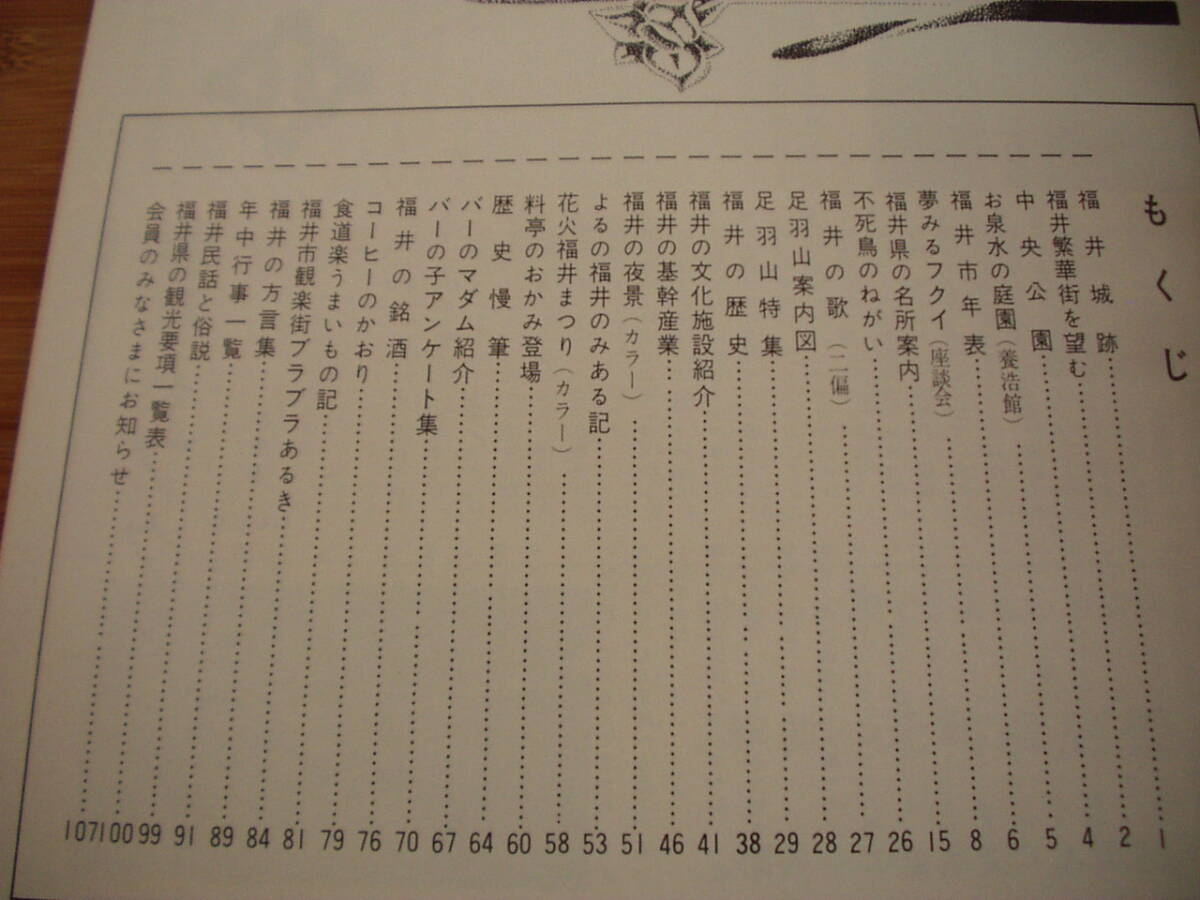 もくじ
福井城跡……1
福井繁華街を望む……2
中央公園……4
お泉水の庭園(養浩館)……5
福井市年表……6
夢みるフクイ(座談会)……8
福井県の名所案内……15
不死鳥のねがい……26
福井の歌(二偏)……28
足羽山案内図……28
足羽山特集……29
福井の歴史……38
福井の文化施設紹介……41
福井の基幹産業……46
福井の夜景(カラー)……51
よるの福井のみある記……53
花火福井まつり(カラー)……58
料亭のおかみ登場……60
歴史慢筆……64
バーのマダム紹介……67
バーの子アンケート集……70
福井の銘酒……76
コーヒーのかおり……79
食道楽うまいもの記……81
福井市観楽街ブラブラあるき……84
福井の方言集……89
年中行事一覧……91
福井民話と俗説……99
福井県の観光要項一覧表……100
会員のみなさまにお知らせ……107